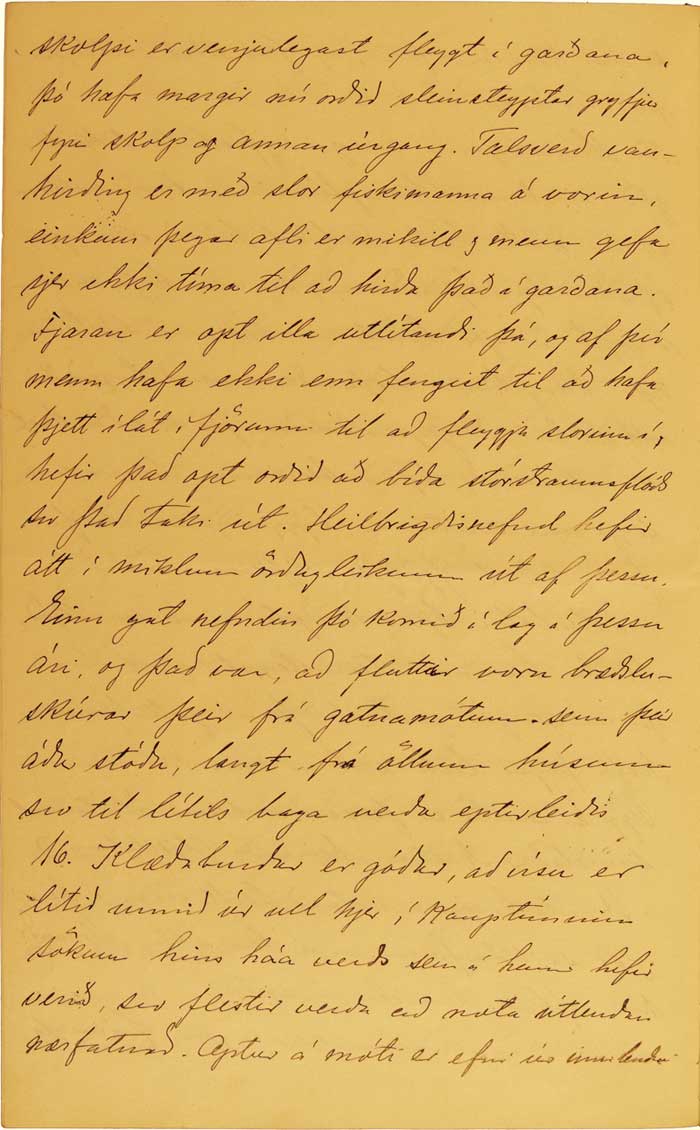 skolpi er venjulegast fleygt í garðana,
þó hafa margir nú orðið steinsteyptar gryfjur
fyrir skolp og annan úrgang. Talsverð van-
hirðing er með slor fiskimanna á vorin,
einkum þegar afli er mikill & menn gefa
sjer ekki tíma til að hirða það á garðana.
Fjaran er opt illa útlítandi þá, og af því
menn hafa ekki enn fengist til að hafa
þjett ílát í fjörunni til að fleygja slorinu í,
hefir það opt orðið að bíða stórstraumsflóðs
sv það taki út. Heilbrigðisnefnd hefir
átt í miklum örðugleikum út af þessu.
Einu gat nefndin þó komið í lag á þessu
ári, og það var, að fluttir voru bræðslu-
skúrar þeir frá gatnamótum sem þeir
áður stóðu, langt frá öllum húsum
sv til lítils baga verða eptirleiðis
16. Klæðaburður er góður, að vísu er
lítið unnið úr ull hjer í Kauptúninu
sökum hins háa verðs sem á henni hefir
verið, sv flestir verða að nota útlendan
nærfatnað. Aptur á móti er efni úr innlendri